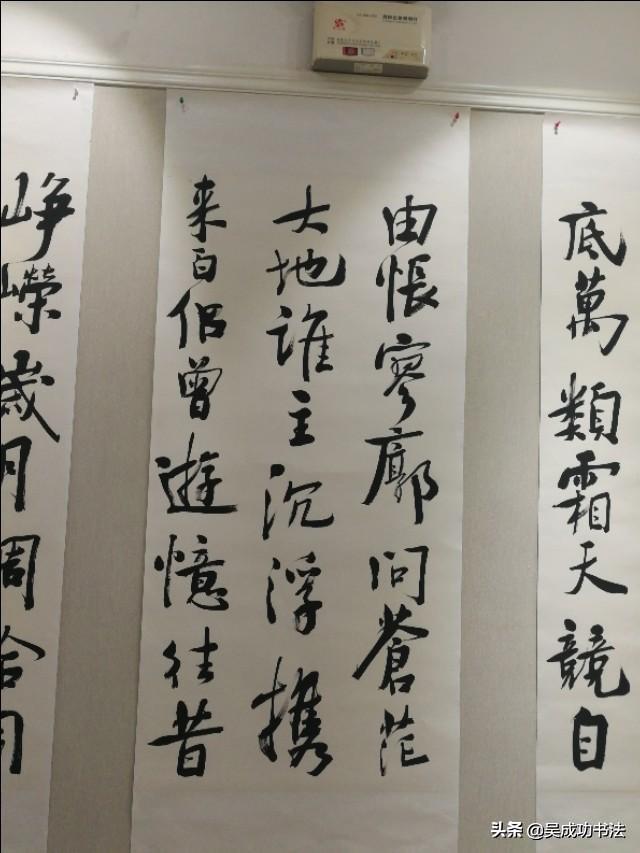 底萬類霜天競自
由悵寥廓問蒼茫
大地誰主沉浮携
来百侣曾遊憶往昔
峥嶸歲月
头条 @吴成功书法